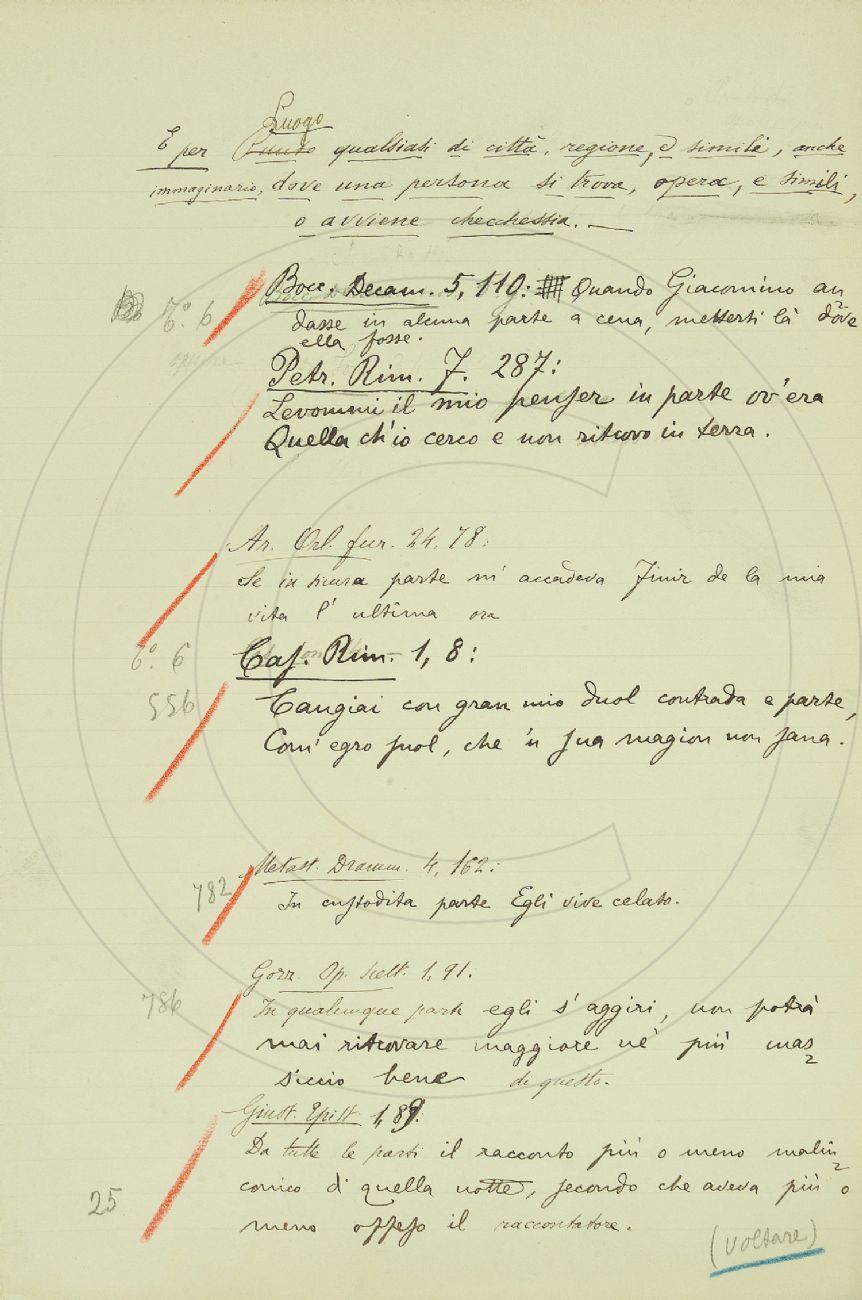 Luogo
E per Punto qualsiasi di città, regione, e simili, anche
immaginario, dove una persona si trova, opera, e simili,
o avviene checchessia. —
Bocc. Decam. 5, 110: Quando Giacomino an
T.º 6
dasse in alcuna parte a cena, mettersi là dove
ella fosse.
oppure
Petr. Rim. 7. 287:
Levommi il mio penser in parte ov'era
Quella ch'io cerco e non ritrovo in terra.
Ar. Orl. fur. 24, 78:
Se in sicura parte m' accadeva Finir de la mia
vita l' ultima ora
T.º 6
Cas. Rim. 1, 8:
556
Cangiai con gran mio duol contrada e parte,
Com' egro suol, che 'n sua magion non sana.
Metast. Dramm. 4, 162:
782
In custodita parte Egli vive celato.
Gozz. Op. scelt. 1, 91:
786
In qualunque parte egli s' aggiri, non potrà
mai ritrovare maggiore nè più mas
siccio bene di questo.
Giust. Epist. 1, 89:
Da tutte le parti il racconto più o meno malin
25
conico di quella notte, secondo che aveva più o
meno offeso il raccontatore.
(voltare)